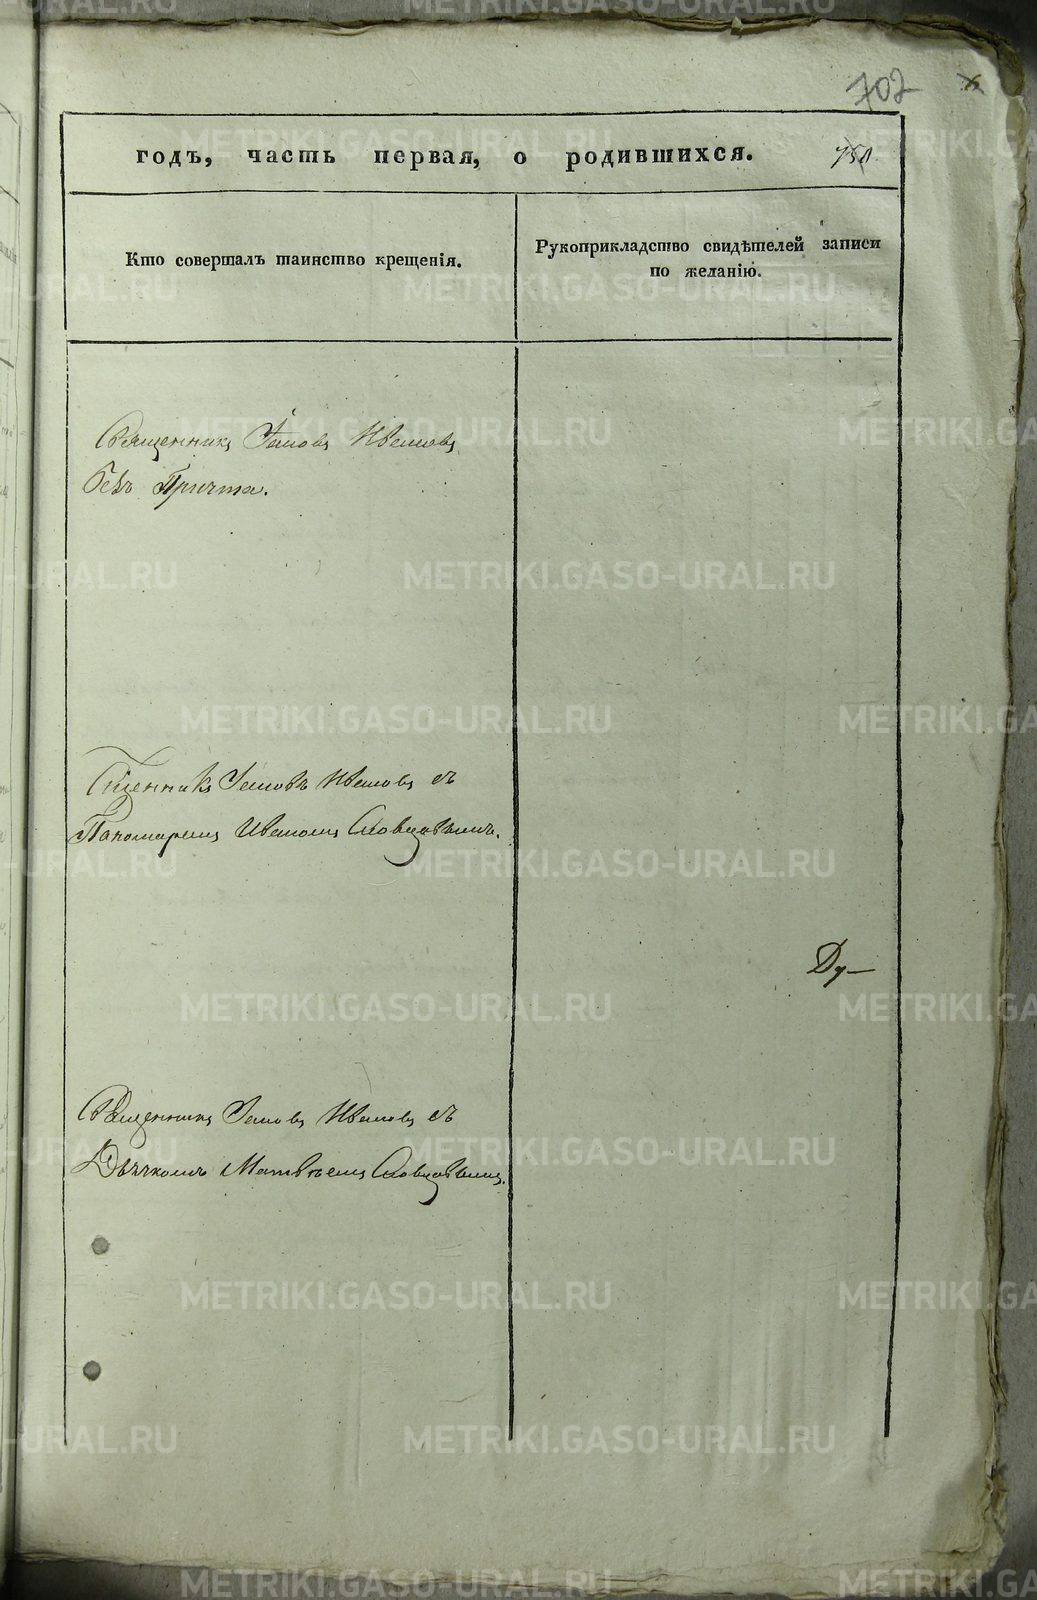 702
годъ, часть первая, о родившихся. 751
Кто совершалъ таинство крещенія.
Рукоприкладство свидѣтелей записи
по желанію.
Священникъ Іаковъ Ивановъ
безъ Причта.
Сщенникъ Іаковъ Ивановъ съ
Пономаремъ Иваномъ Словцовымъ.
Ду—
Священникъ Іаковъ Ивановъ съ
Дьячкомъ Матвѣемъ Словцовымъ.
METRIKI.GASO-URAL.RU